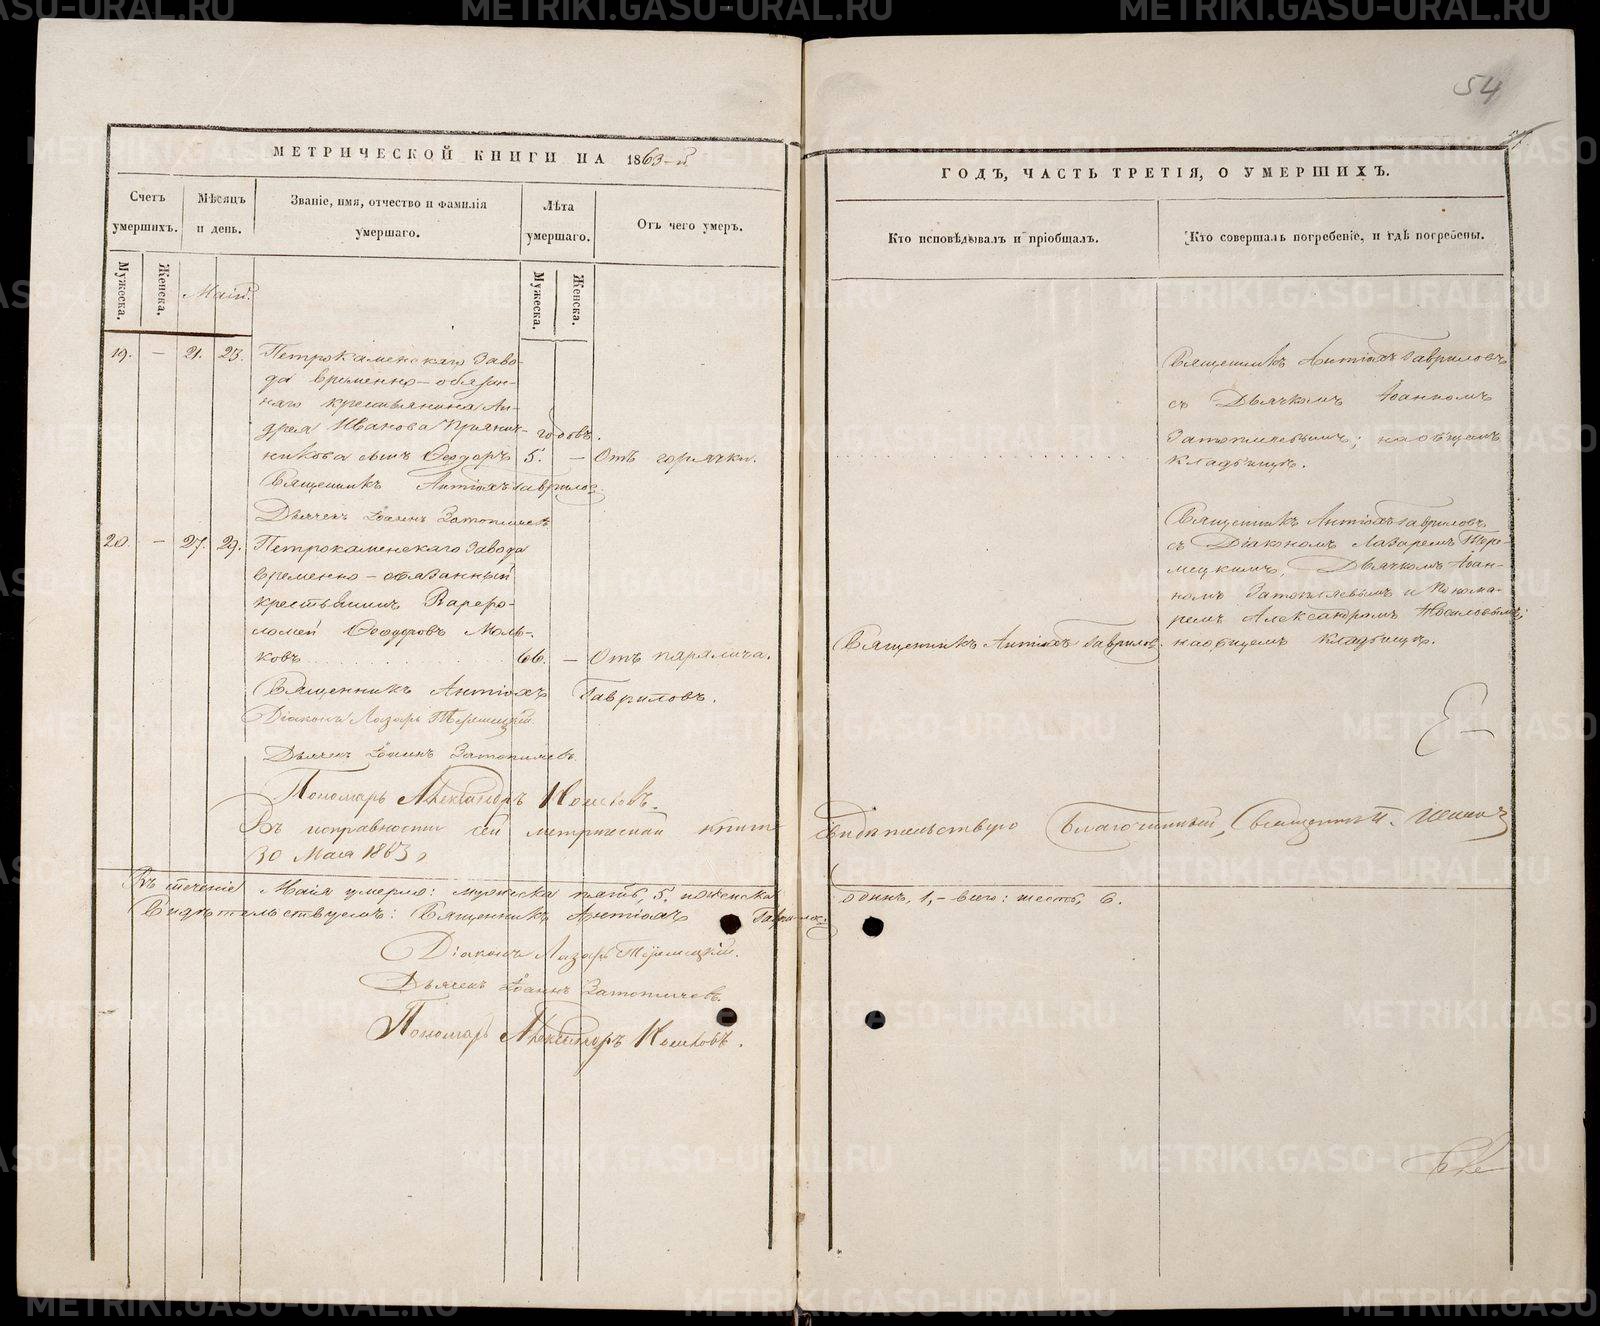 54
МЕТРИЧЕСКОЙ КНИГИ НА 1863-й
Счетъ умершихъ.
Мѣсяцъ и день.
Званіе, имя, отчество и фамилія умершаго.
Лѣта умершаго.
Отъ чего умеръ.
Мужеска.
Женска.
Маій.
Мужеска.
Женска.
19. — 21. 23. Петрокаменскаго Заво-
да временно-обязан-
наго крестьянина Ан-
дрея Иванова Прянич- годовъ.
никова сынъ Ѳеодоръ 5. — Отъ горячки.
Священникъ Антіохъ Гавриловъ
Дьячекъ Іоаннъ Затопляевъ
20. — 27. 29. Петрокаменскаго Завода
временно-обязанный
крестьянинъ Варѳро-
ломей Ѳеодоровъ Моль-
ковъ 66. — Отъ паралича.
Священникъ Антіохъ Гавриловъ.
Діаконъ Лазарь
Дьячекъ Іоаннъ Затопляевъ
Пономарь Александръ
Въ исправности сей метрической книги
30 Мая 1863
Въ теченіе Маія умерло: мужеска пять, 5. и женска
Видѣтельствуемъ: Священникъ Антіохъ Гавриловъ
Діаконъ Лазарь
Дьячекъ Іоаннъ Затопляевъ
Пономарь Александръ
ГОДЪ, ЧАСТЬ ТРЕТІЯ, О УМЕРШИХЪ.
Кто исповѣдывалъ и пріобщалъ.
Кто совершалъ погребеніе, и гдѣ погребены.
Священникъ Антіохъ Гавриловъ
съ Дьячкомъ Іоанномъ
Затопляевымъ; на общемъ
кладбищѣ.
Священникъ Антіохъ Гавриловъ
съ Діакономъ Лазаремъ
Дьячкомъ Іоан-
номъ Затопляевымъ и Понома-
ремъ Александромъ
Священникъ Антіохъ Гавриловъ. на общемъ кладбищѣ.
свидѣтельствую Благочинный, Священникъ
одинъ, 1, — всего: шесть, 6.
METRIKI.GASO-URAL.RU